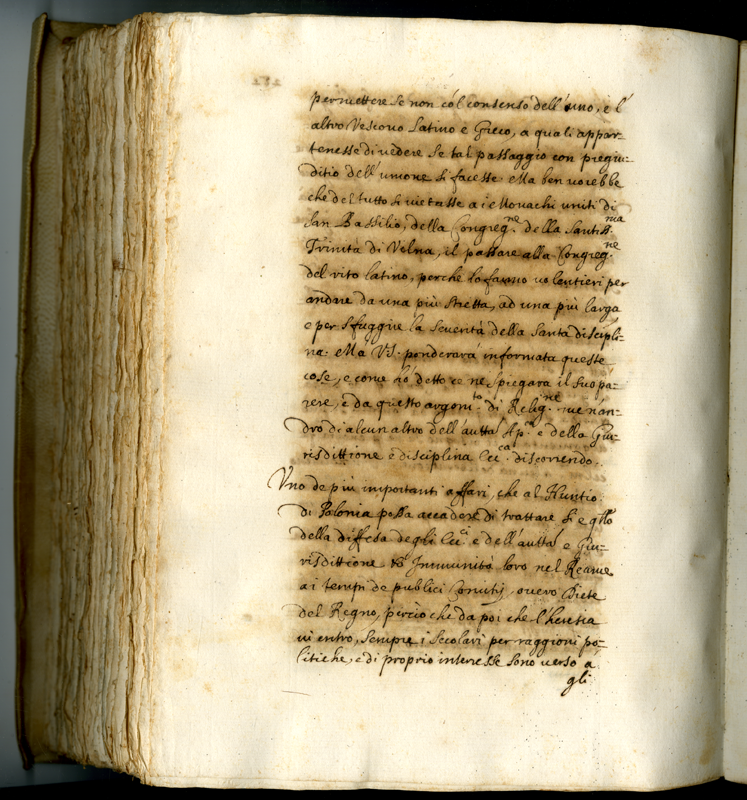 permettere se non cól consenso dell'uno, e l'
altro Vescouo Latino e Greco, a quali appar=
tenesse di uedere se tal passaggio con pregiu=
ditio dell'unione si facesse. Ma ben uorebbe
che del tutto si uietasse a i Monachi uniti di
San Bassilio, della Congreg.ne della Santiss.ma
Trinità di Velna, il passare alla Congreg.ne
del rito latino, perche lo fanno uolentieri per
andare da una più stretta, ad una più larga
e per sfuggire la seuerità della Santa discipli=
na. Ma V.S. ponderarà informata queste
cose, e come hò detto ce ne spiegarà il suo pa=
rere, e da questo argom.to di Relig.ne ue nán=
drò di alcun altro dell'autta Ap.ca e della Giu=
risdittione e disciplina Ecc.ca discorrendo.
Vno de più importanti affari, che al Nuntio
di Polonia possa accadere di trattare si e qllo
della diffesa degli Ecc.ci e dell'autta e Giu=
risdittione et Immunità loro nel Reame
a i tempi de publici Conuti, ouero Diete
del Regno, percio che da poi che l'heresia
ui entro, sempre i secolari per raggioni po=
litiche, e di proprio interesse sono uerso a
gli